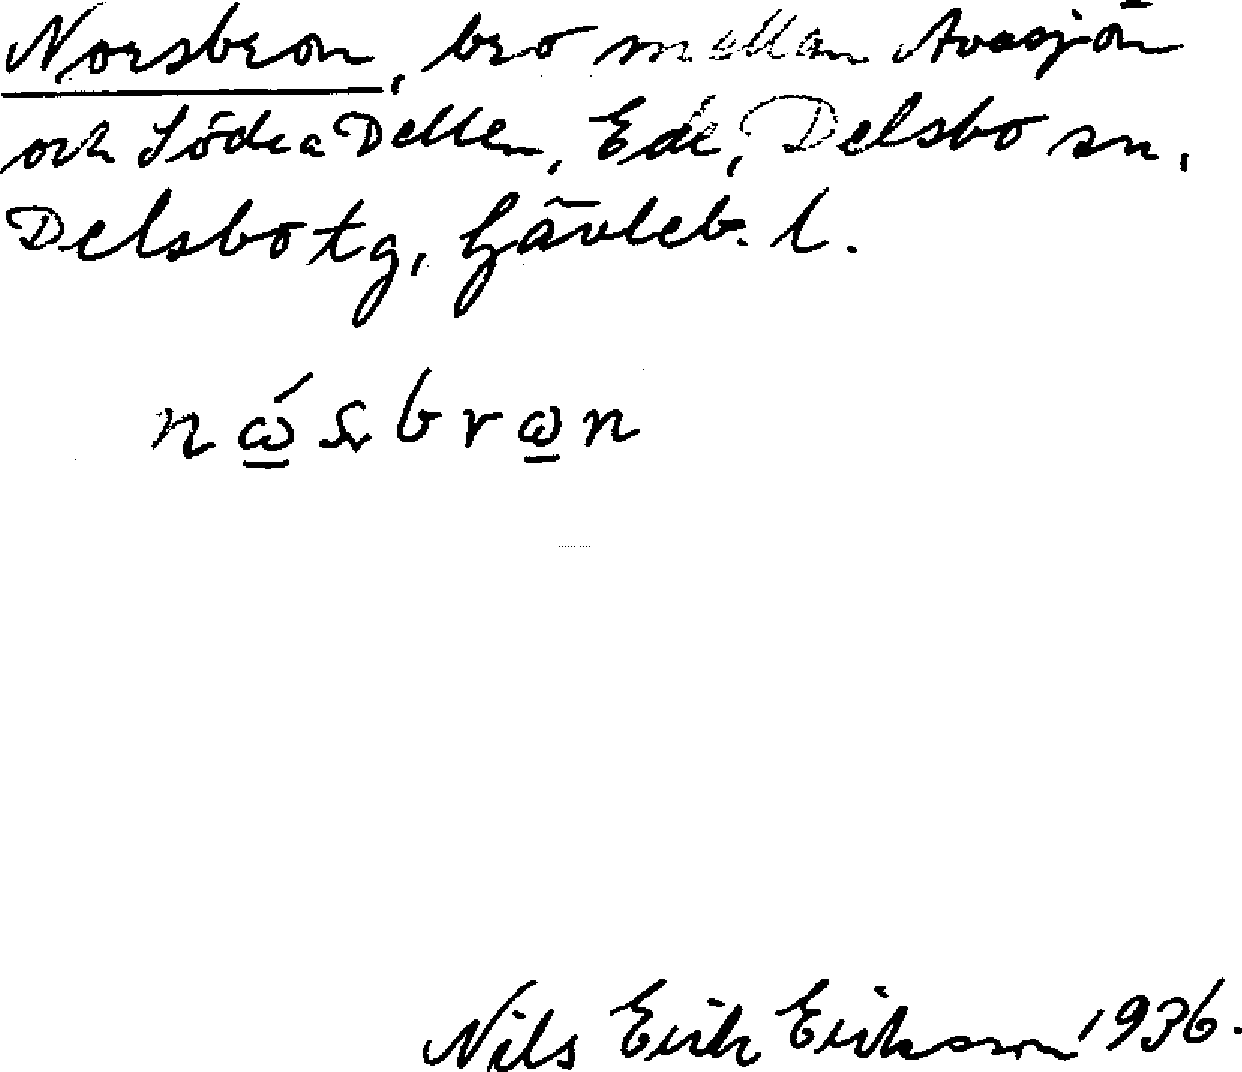 Norsbron, bro mellan Avasjön
och Södra Dellen, Ede, Delsbo sn,
Delsbo tg, Gävleb. l.
Nils Erik Erikson 1936.